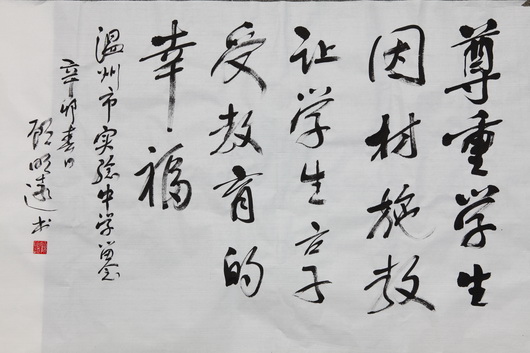 尊重学生
因材施教
让学生享
受教育的
幸福
温州市实验中学留念
辛卯春日
顾明远书